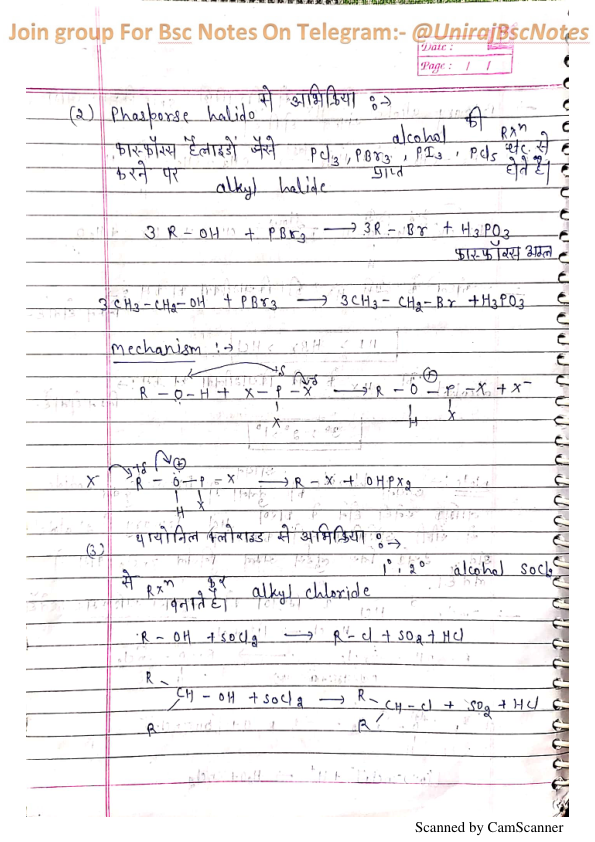 Join group For Bsc Notes On Telegram:- @UnirajBscNotes
Date :
Page : / /
(2) Phasporse halido से अभिक्रिया :→
फास्फोरस हैलाइडो जैसे alcohol की PCl3, PBr3, PI3, PCl5 etc. से Rxn
करने पर alkyl halide प्राप्त होते है।
3 R - OH + PBr3 → 3R - Br + H3PO3
फास्फोरस अम्ल
3 CH3-CH2-OH + PBr3 → 3CH3-CH2-Br + H3PO3
Mechanism :→
R - O - H + X - P - X → R - O - P - X + X-
+δ -δ +
X H X
X- R - O - P - X → R - X + OHPX2
+δ +
H X
(3) थायोनिल क्लोराइड से अभिक्रिया :→
1°, 2° alcohol SOCl2
से Rxn कर alkyl chloride
बनाते है।
R - OH + SOCl2 → R - Cl + SO2 + HCl
R R
CH - OH + SOCl2 → CH - Cl + SO2 + HCl
R R
Scanned by CamScanner